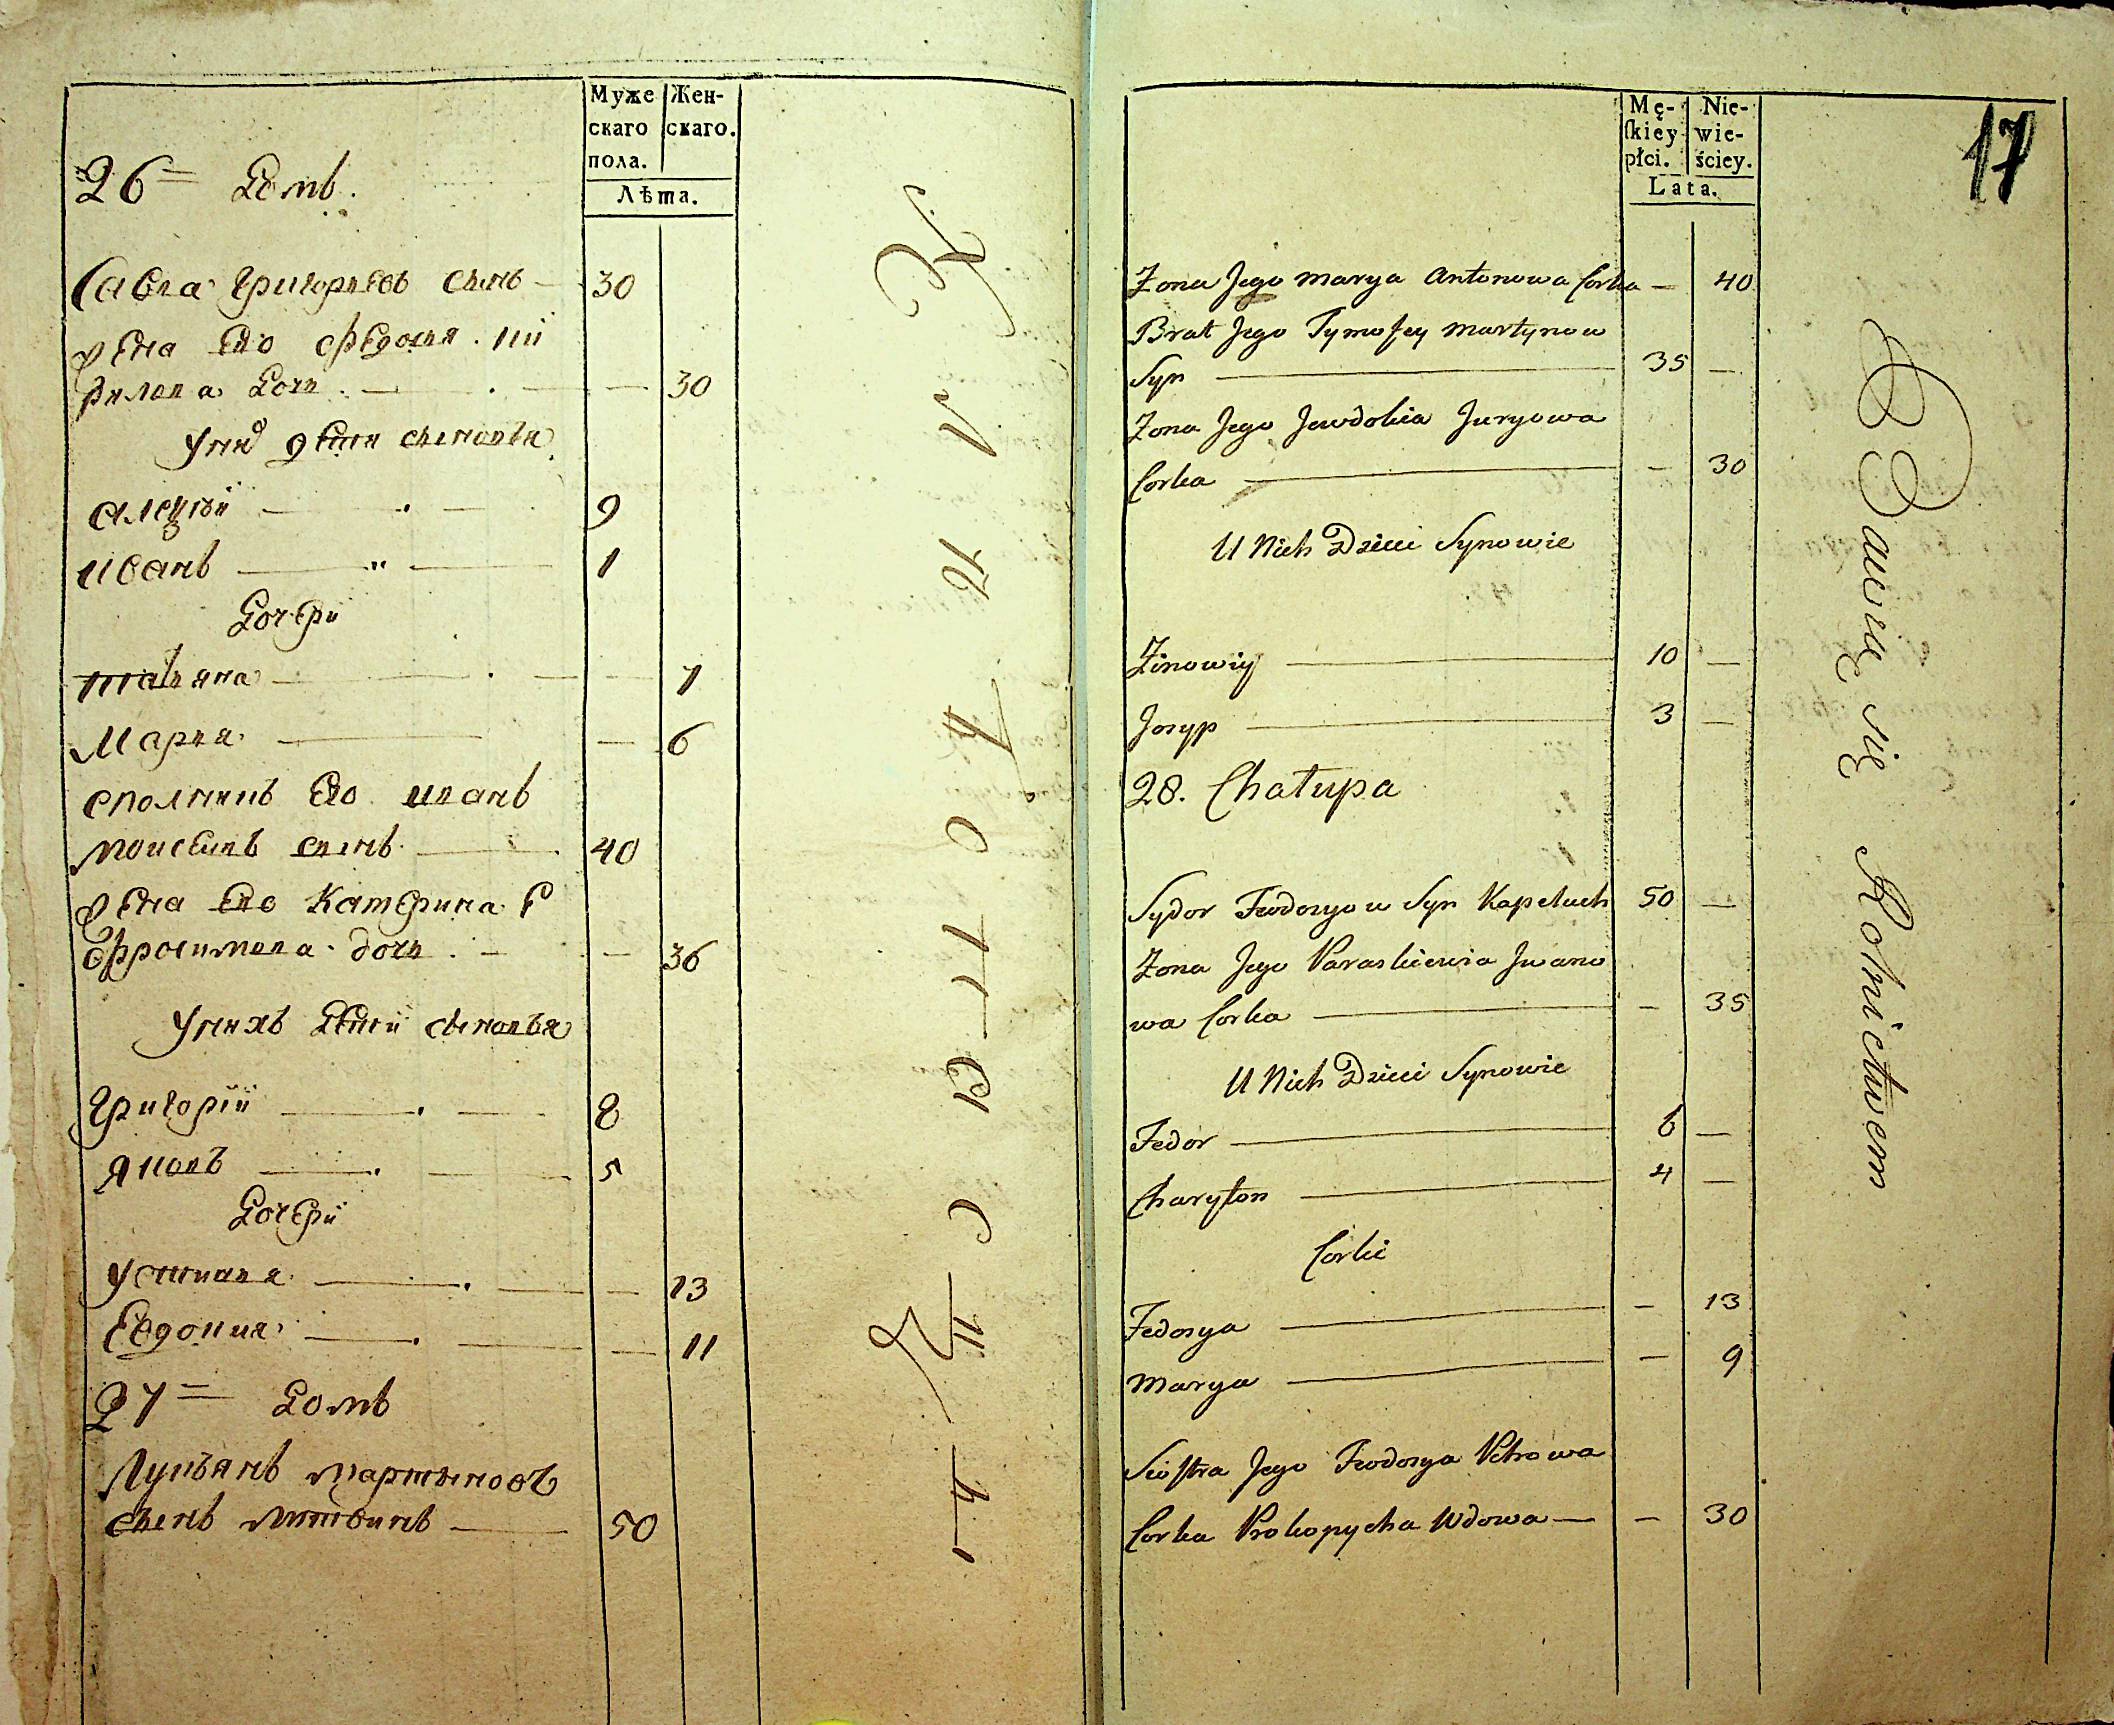 Муже
скаго
пола.
Жен-
скаго.
Лѣта.
26 = Домъ.
Савка Григорьевъ сынъ — 30
жена его Федосия
дочь — 30
У них дети сыновья
Алексѣй — 9
Иванъ — " — 1
Дочери
Татьяна — 7
Мария — 6
его Иванъ
сынъ — 40
жена его Катерина Е
фросимова дочь — 36
У нихъ дети сыновья
Григорій — 8
Яковъ — 5
Дочери
Устиния — 13
Евдокия — 11
27 = Домъ
Лукъянъ Мартыновъ
сынъ Литвинъ — 50
17
Mę-
skiey
płci.
Nie-
wie-
ściey.
Lata.
Zona Jego Marya Antonowa Corka — 40
Brat Jego Tymofey Martynow
Syn — 35 —
Zona Jego Jewdokia Juryowa
Corka — — 30
U Nich Dzieci Synowie
Zinowiy — 10 —
Josyp — 3 —
28. Chałupa
Sydor Feodosyow Syn Kapeluch 50 —
Zona Jego Paraskiewia Jwano
wa Corka — — 35
U Nich Dzieci Synowie
Fedor — 6 —
Charyton — 4 —
Corki
Fedosya — — 13
Marya — — 9
Siostra Jego Feodosya Petrowa
Corka Prokopycha Wdowa — — 30
Bawię się Rolnictwem